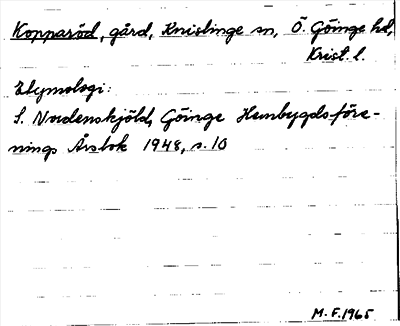 Kopparöd, gård, Knislinge sn, Ö. Göinge hd,
Krist. l.
Etymologi:
S. Nordenskjöld, Göinge Hembygdsföre-
nings Årsbok 1948, s. 10
M. F. 1965